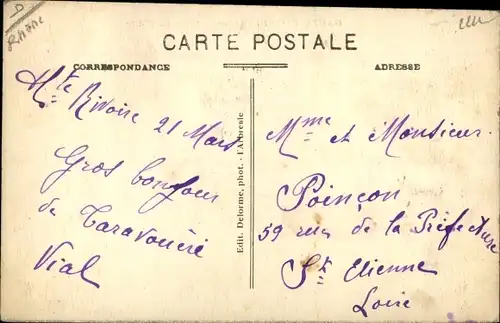 RHÔNE
CARTE POSTALE
CORRESPONDANCE
ADRESSE
Rivoire 21 Mars
Gros bonjour
de Taravouère
Vial
Edit. Delorme, phot. - l'Arbresle
Mme et Monsieur
Poinçon
59 rue de la Préfecture
St Etienne
Loire